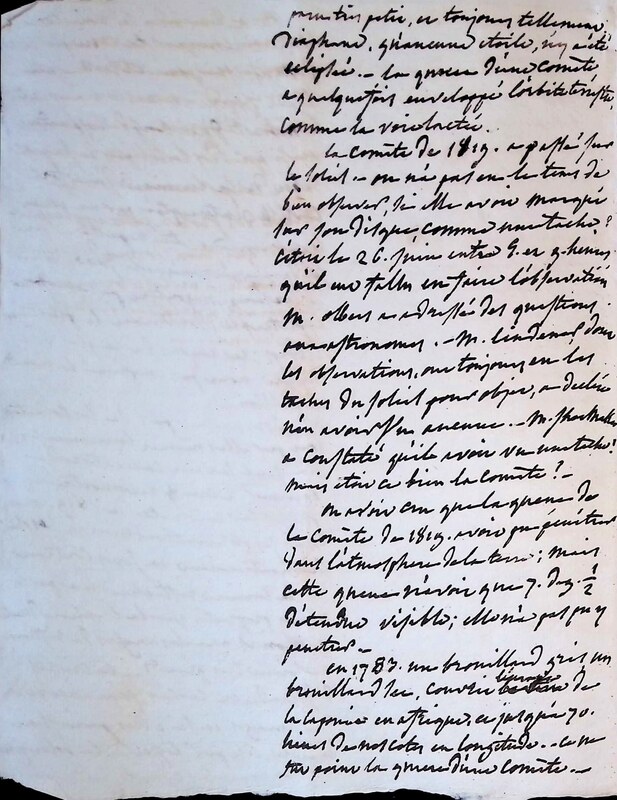 petite, et toujours tellement
diaphane, qu'aucune etoile, n'y a été
eclipsée. — la queue d'une Cométe
a quelquefois enveloppé l'orbite terrestre,
comme la voie lactée.
la cométe de 1819. a passé sur
le soleil. — on n'a pas eu le tems de
bien observer, si elle avoit marqué
sur son disque, comme une tache?
c'étoit le 26. juin entre 5. et 9 heures
qu'il eut fallu en faire l'observation
M. olbers a adressé des questions
aux astronomes. — M. lindener, dont
les observations, ont toujours eu les
taches du soleil pour objet, a declaré
n'en avoir vu aucune. — M.
a constaté qu'il avoit vu une tache?
mais etoit ce bien la cométe? —
on avoit cru que la queue de
la cométe de 1819. avoit pu pénétrer
dans l'atmosphere de la terre; mais
cette queue n'avoit que 7. deg. ½
d'étendue visible; elle n'a pas pu y
penetrer —
en 1783. un brouillard gris, un
brouillard sec, couvrit de
la laponie en afrique, et jusqu'a 70.
lieues de nos cotes en longitude. — ce ne
fut point la queue d'une Cométe. —